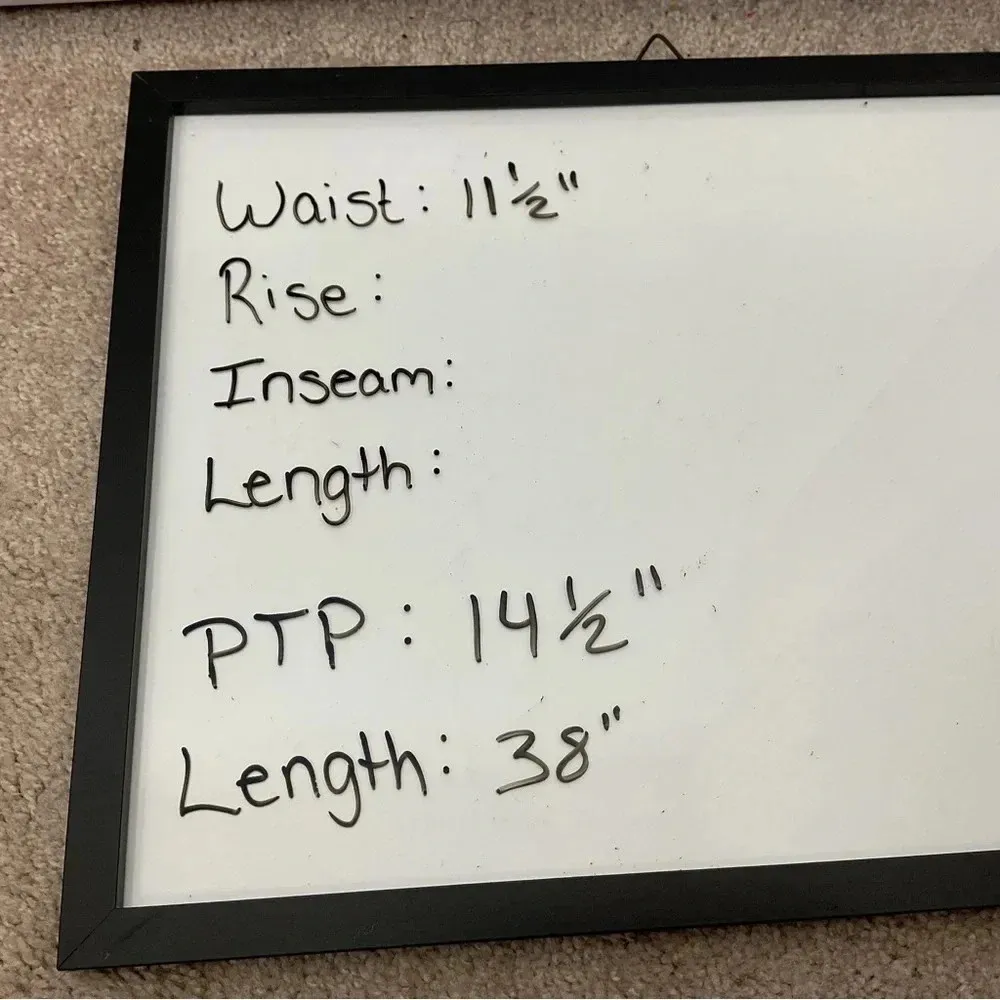 Waist: 11 1/2"
Rise:
Inseam:
Length:
PTP: 14 1/2"
Length: 38"